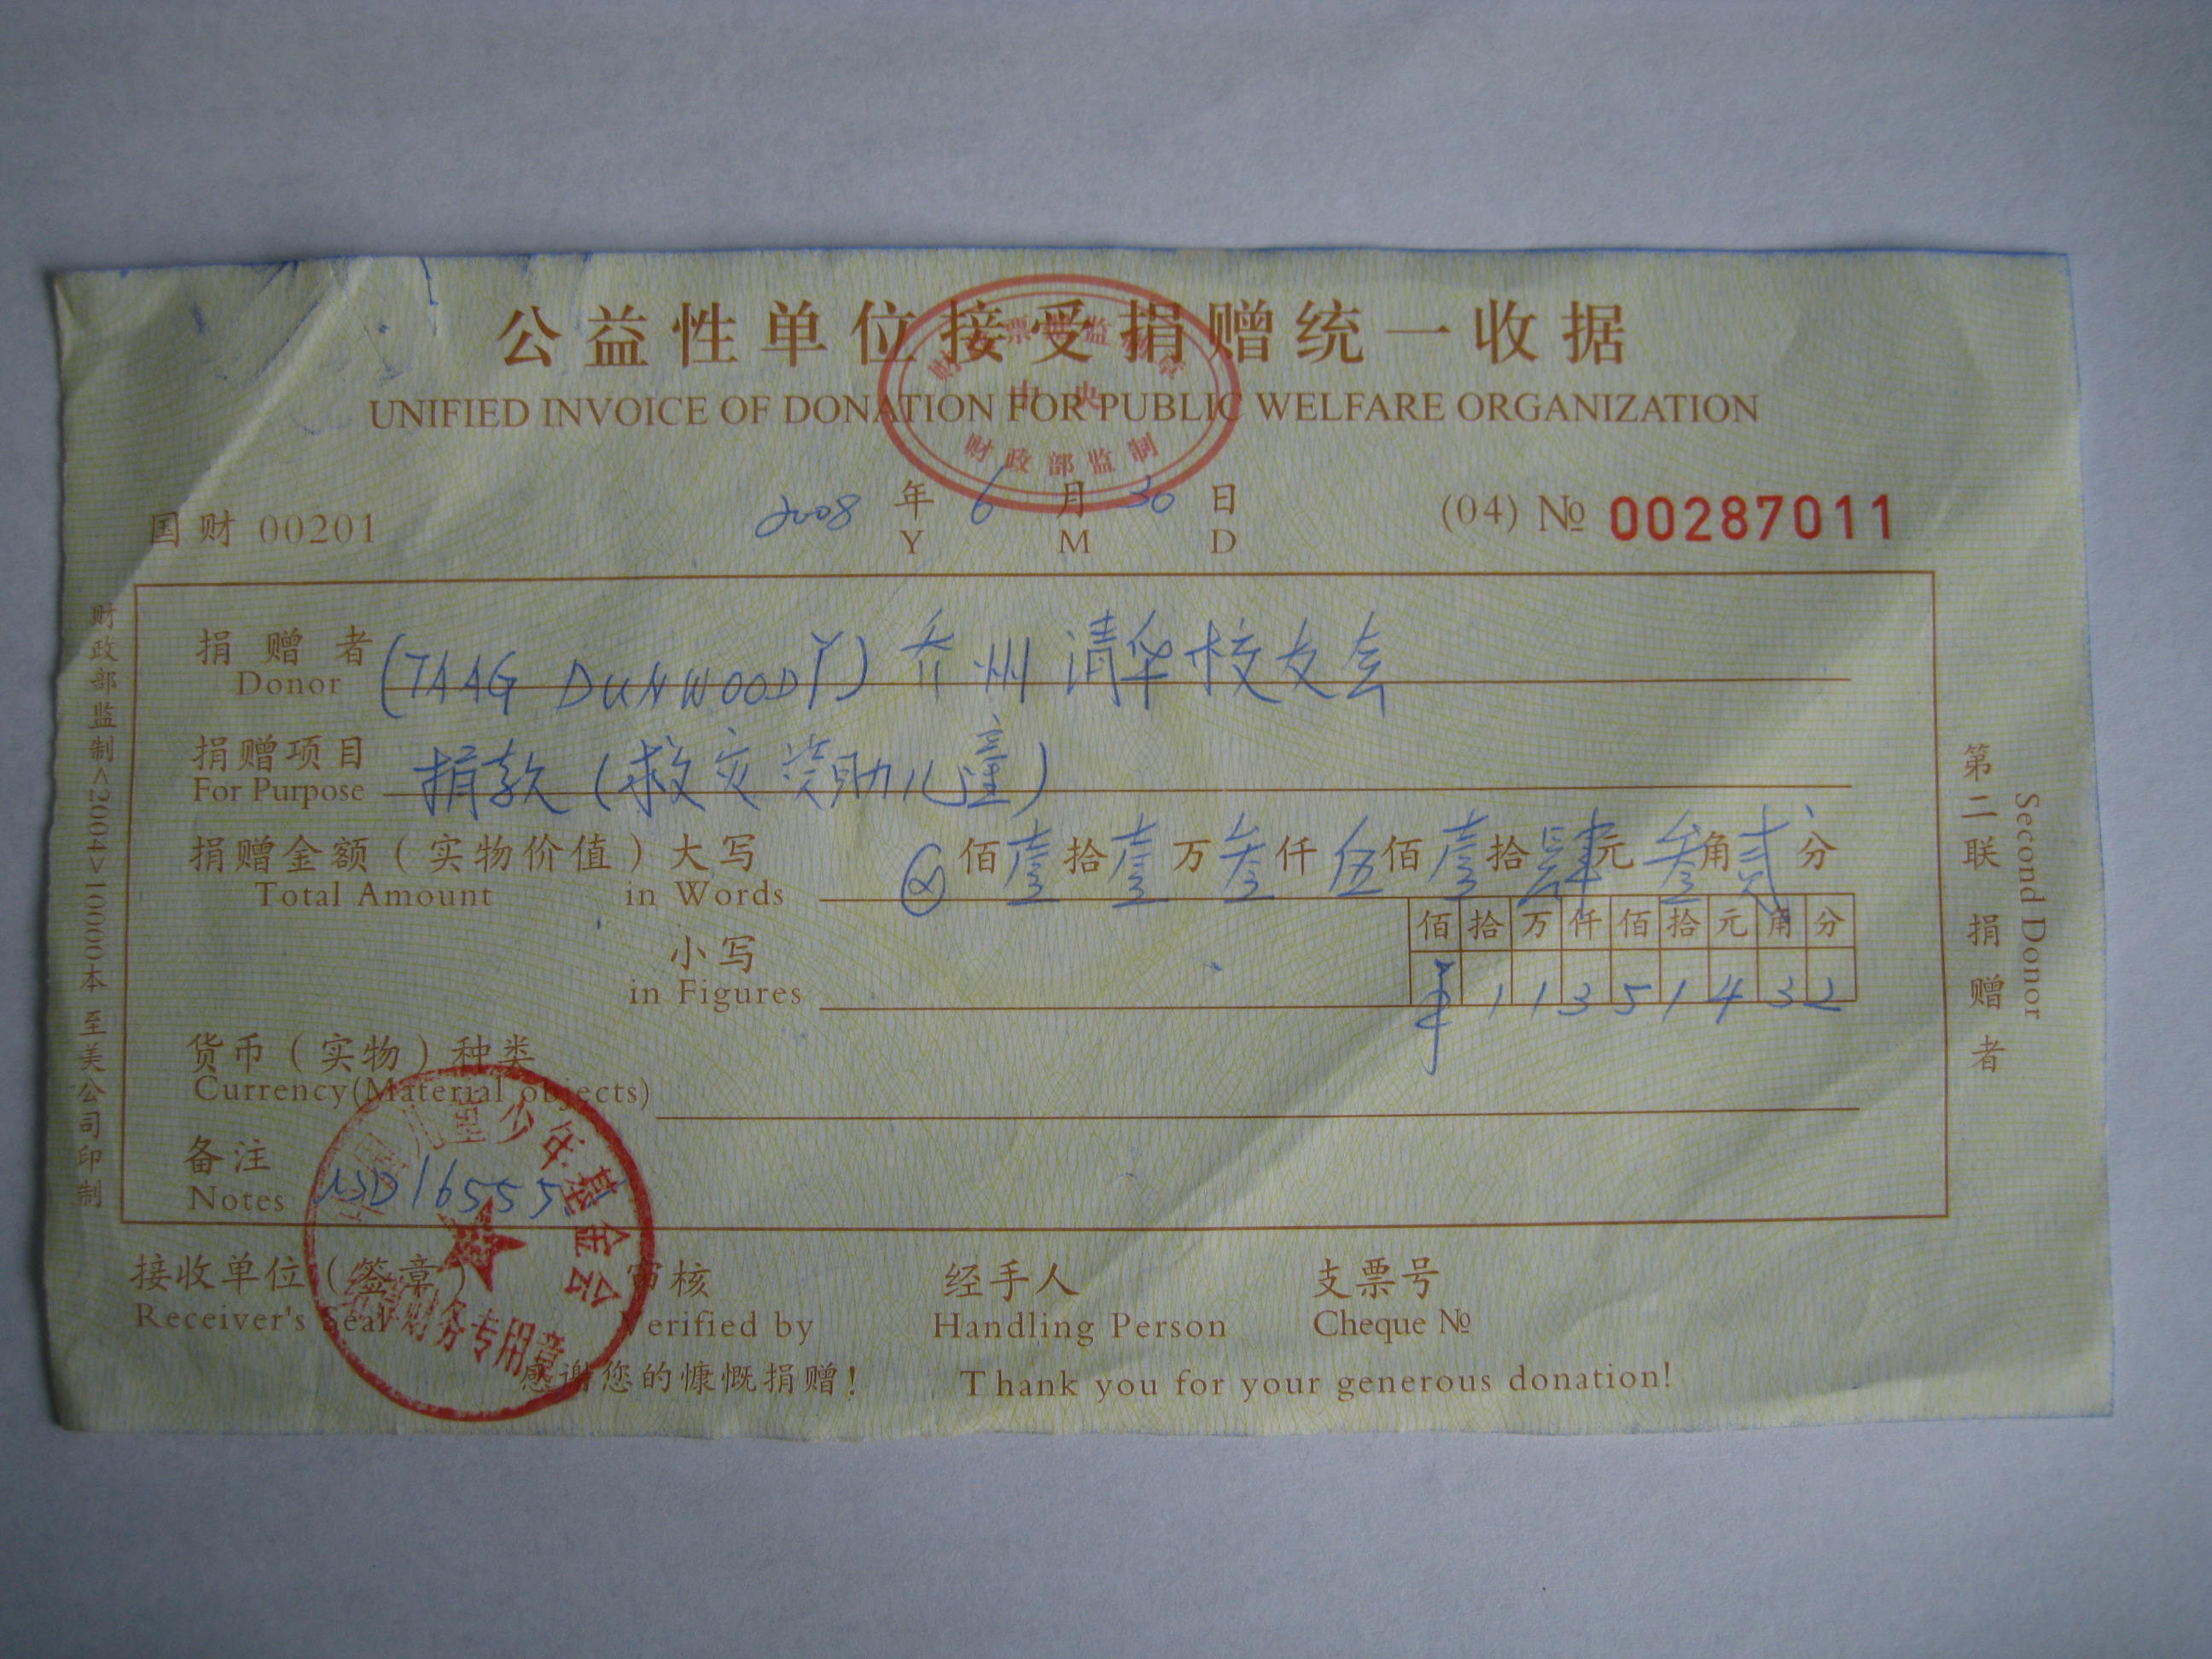 公益性单位接受捐赠统一收据
UNIFIED INVOICE OF DONATION FOR PUBLIC WELFARE ORGANIZATION
财政票据监制章
中央
财政部监制
国财 00201
2008 年 6 月 30 日
Y M D
(04) № 00287011
捐赠者 (TAAG DUNWOODY) 乔州清华校友会
Donor
捐赠项目 捐款(救灾资助儿童)
For Purpose
捐赠金额(实物价值)大写 ⊗佰壹拾壹万叁仟伍佰壹拾肆元叁角贰分
Total Amount in Words
佰 拾 万 仟 佰 拾 元 角 分
小写 ¥ 1 1 3 5 1 4 3 2
in Figures
货币(实物)种类
Currency(Material objects)
备注 USD16555
Notes
中国儿童少年基金会
财务专用章
接收单位(签章) 审核 经手人 支票号
Receiver's Seal Verified by Handling Person Cheque №
感谢您的慷慨捐赠! Thank you for your generous donation!
财政部监制<2004>10000本 至美公司印制
第二联 捐赠者
Second Donor